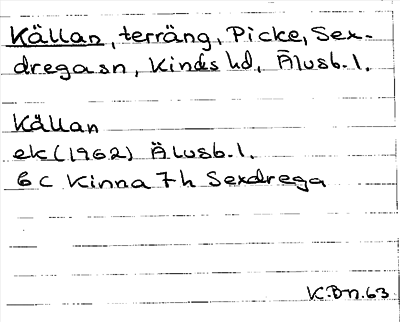 Källan, terräng, Picke, Sex-
dregasn, Kinds hd, Älvsb. l.
Källan
ek (1962) Älvsb. l.
6 C Kinna 7 h Sexdrega
K.Dn.63